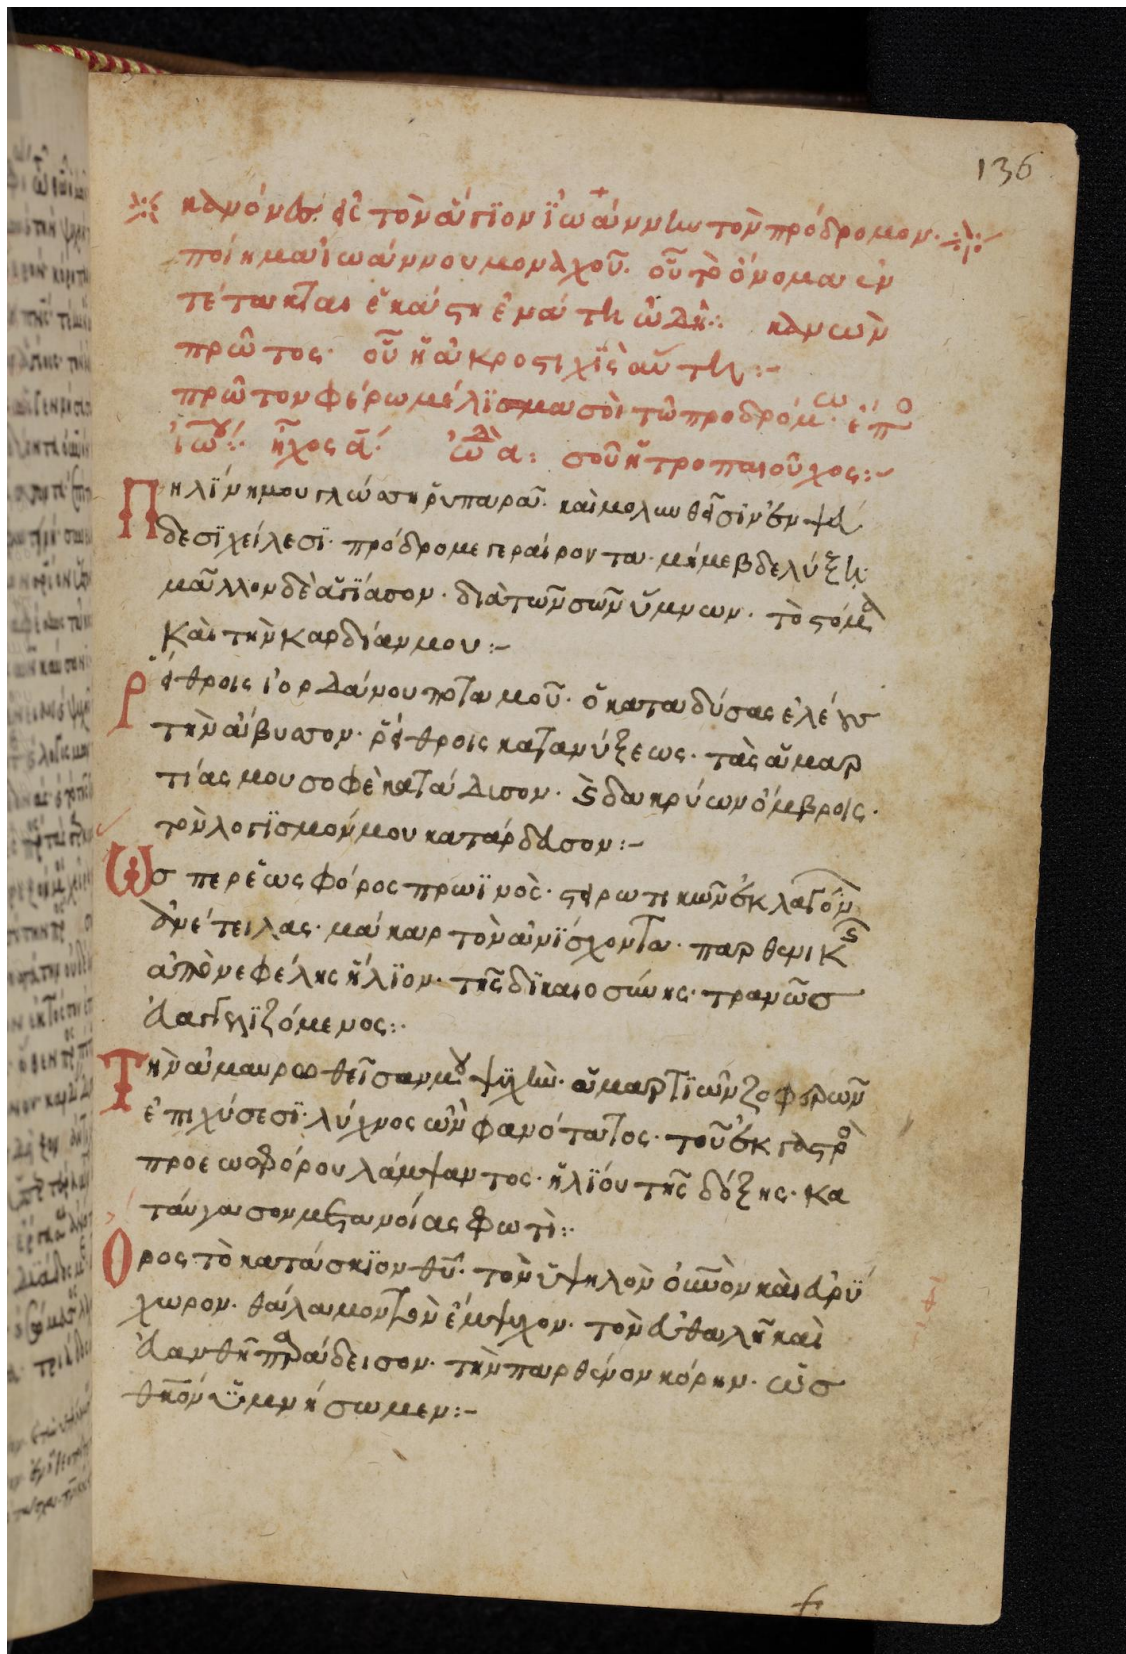 136
κανόνες εἰς τὸν ἅγϊον ϊωάννην τὸν πρόδρομον·
ποίημα ἰωάννου μοναχοῦ· οὗ τὸ ὄνομα ἐν
τέτακται ἑκάστη ἐνάτη ὠδῆ:· κανὼν
πρῶτος· οὗ ἡ ἀκροστιχϊς αὕτη:-
πρῶτον φέρω μέλϊσμα σοὶ τῶ προδρόμω·
ἰω ἦχος α· ὠδ α: σοῦ ἡ τροπαιοῦχος:-
Πηλίνη μου γλώσση ῥυπαρᾶ· καὶ μολυνθεῖσϊν ἐν ψεύ
δεσϊ χείλεσϊ· πρόδρομε γεραίροντα· μή με βδελύξη·
μᾶλλον δὲ ἁγϊάσον· διὰ τῶν σῶν ὕμνων· τὸ στόμα
καὶ τὴν καρδίαν μου:-
Ῥείθροις ἰορδάνου ποταμοῦ· ὁ καταδύσας
τὴν ἄβυσσον· ῥείθροις κατανύξεως· τὰς ἁμαρ
τίας μου σοφὲ κατάδισον· καὶ δακρύων ὄμβροις·
τὸν λογϊσμόν μου κατάρδευσον:-
Ὥσπερ ἑωσφόρος πρωϊνὸς· στειρωτικῶν ἐκ λαγόνων
ἀνέτειλας· μάκαρ τὸν ἀνϊσχοντα· παρθενικῆς
ἀπὸ νεφέλης ἥλϊον· τῆς δϊκαιοσύνης· τρανῶς
εὐαγγελϊζόμενος:·
Τὴν ἀμαυρωθεῖσαν μου ψϋχὴν· ἁμαρτϊῶν ζοφερῶν
ἐπιχύσεσϊ· λύχνος ὢν φανότατος· τοῦ ἐκ γαστρὸς
πρὸ ἑωσφόρου λάμψαντος· ἡλϊόυ τῆς δόξης· κα
τάυγασον μετανοίας φωτὶ:·
Ὄρος τὸ κατάσκϊον θυ· τὸν ὑψηλὸν οὐνὸν καὶ εὐρϋ
χωρον· θάλαμον τὸν ἔμψυχον· τὸν εὐθαλῆ καὶ
εὐανθῆ παράδεισον· τὴν παρθένον κόρην· ὡς
θκον ϋμνήσωμεν:-